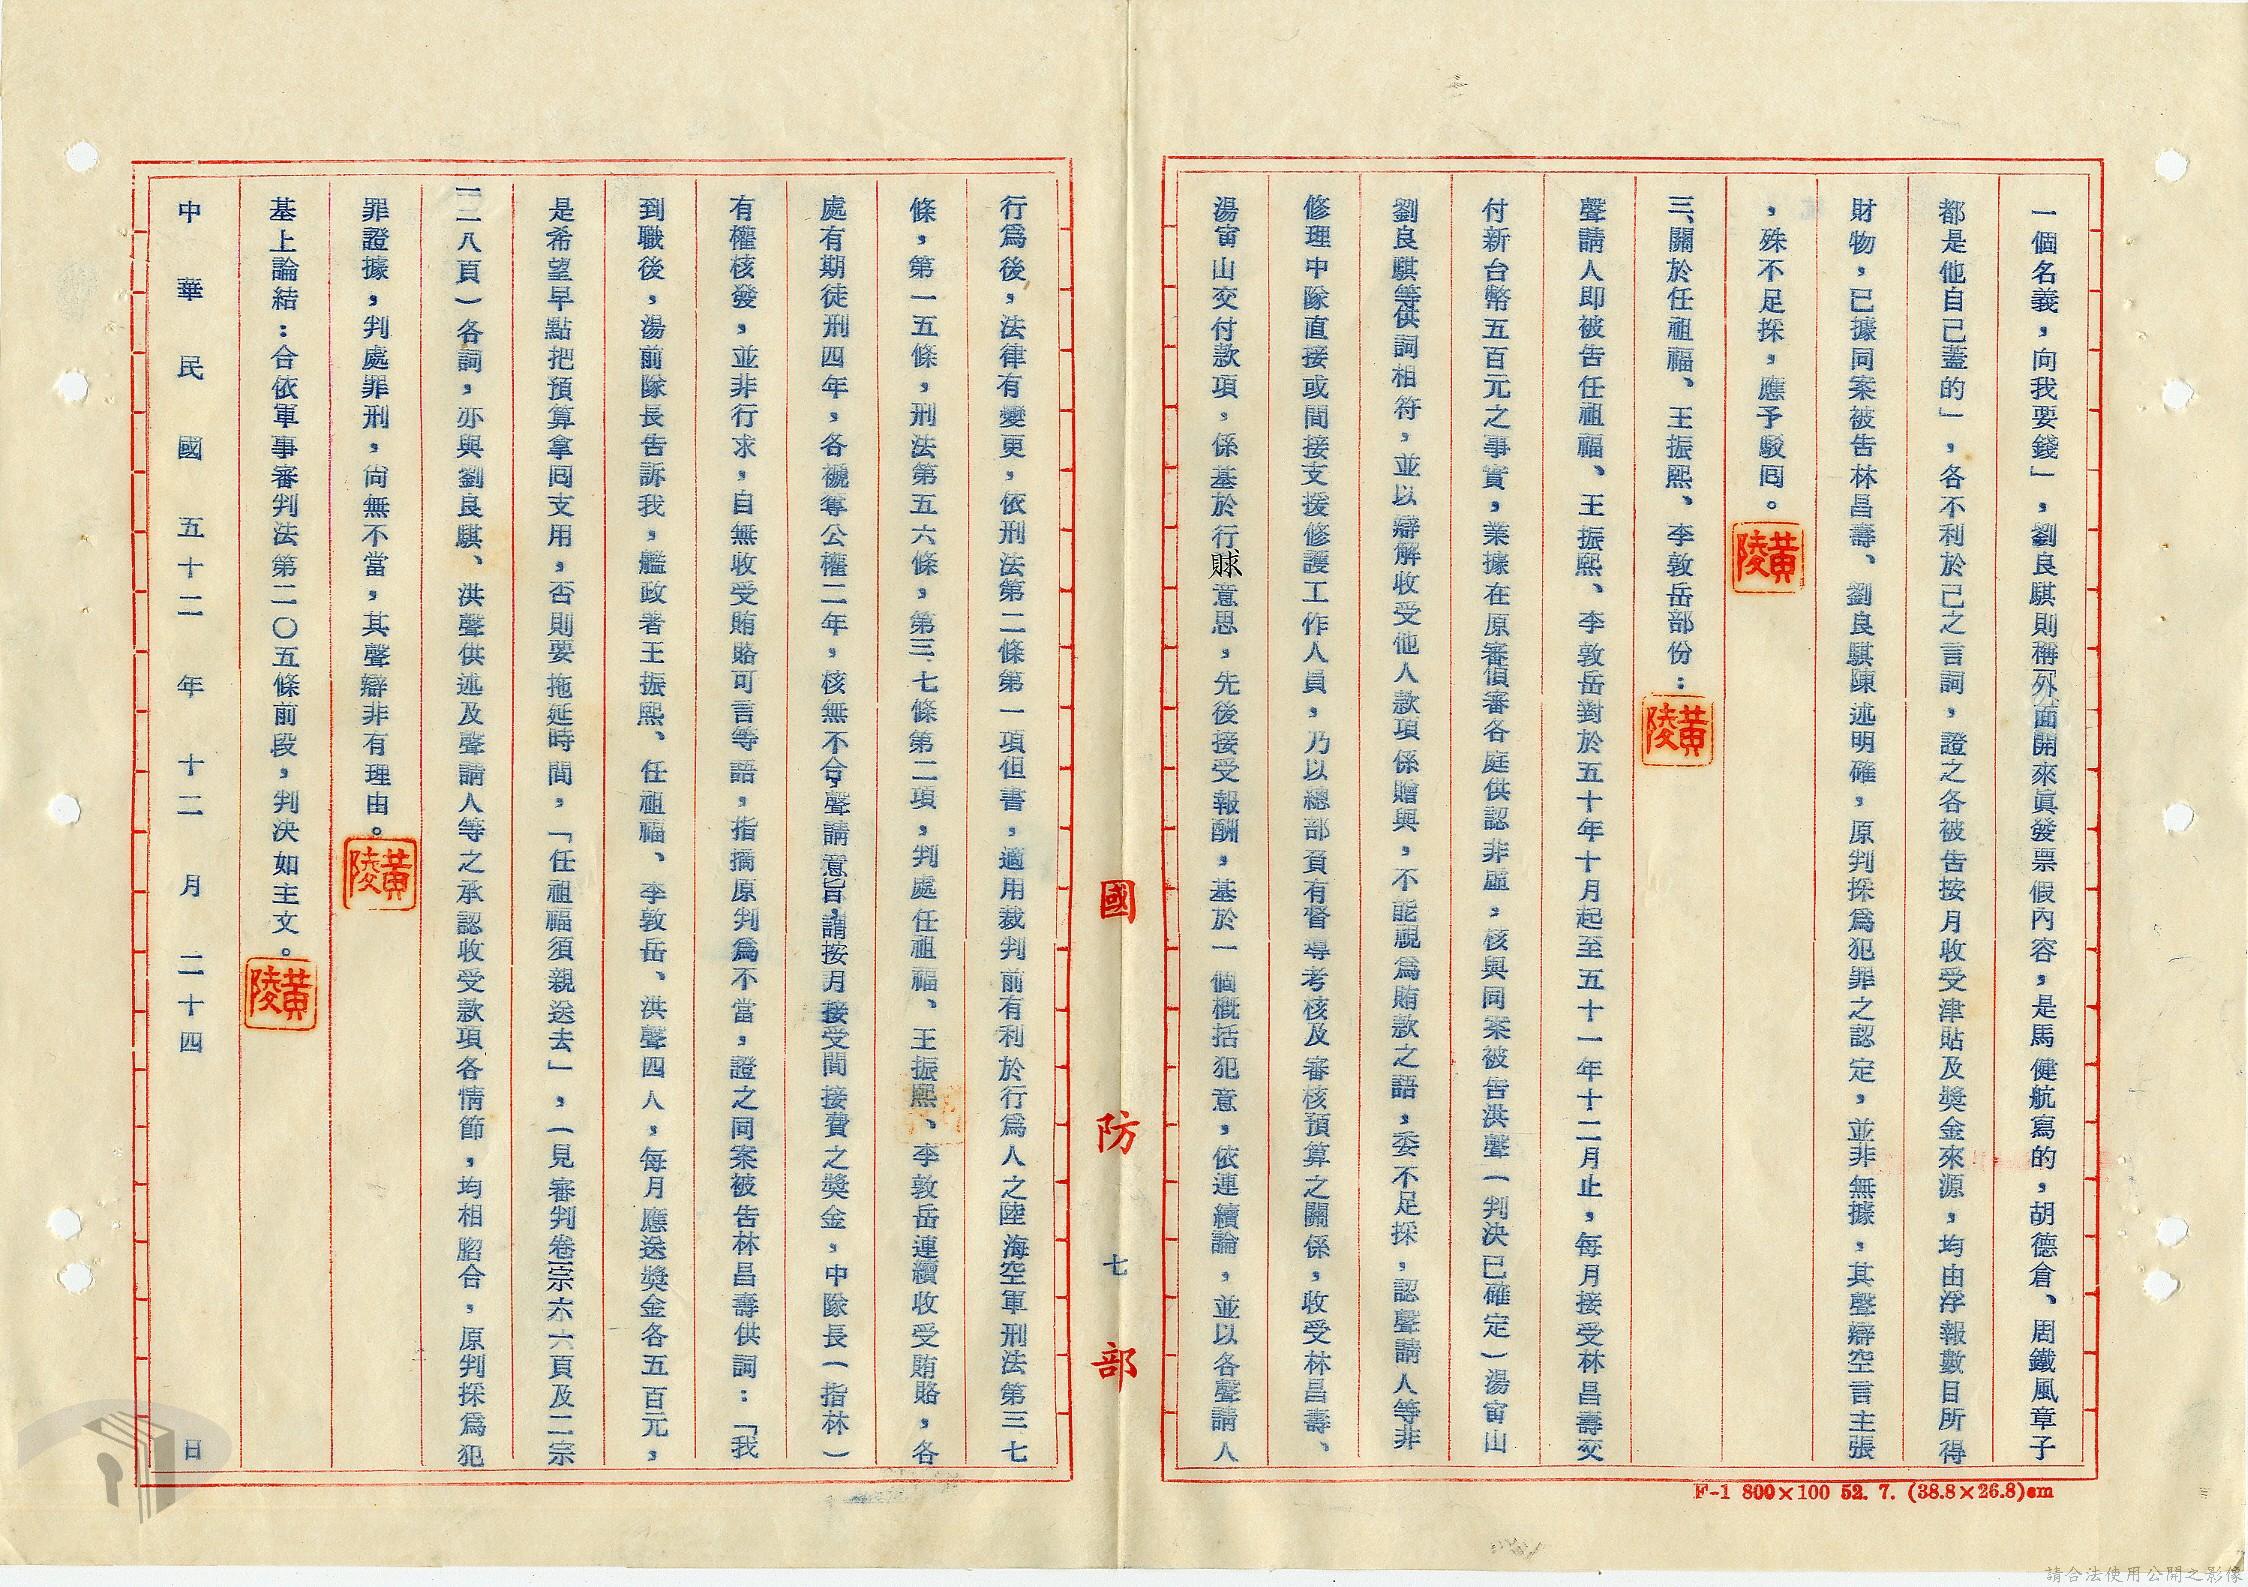 一個名義，向我要錢」，劉良騏則稱「外面開來眞發票假內容，是馬健航寫的，胡德倉、周鐵風章子
都是他自己蓋的」，各不利於己之言詞，證之各被告按月收受津貼及獎金來源，均由浮報數目所得
財物，已據同案被告林昌壽、劉良騏陳述明確，原判採爲犯罪之認定，並非無據，其聲辯空言主張
，殊不足採，應予駁囘。
黃陵
三、關於任祖福、王振熙、李敦岳部份：
黃陵
聲請人即被告任祖福、王振熙、李敦岳對於五十年十月起至五十一年十二月止，每月接受林昌壽交
付新台幣五百元之事實，業據在原審偵審各庭供認非虛，核與同案被告洪聲（判決已確定）湯宙山
劉良騏等供詞相符，並以辯解收受他人款項係贈與，不能視爲賄款之語，委不足採，認聲請人等非
修理中隊直接或間接支援修護工作人員，乃以總部負有督導考核及審核預算之關係，收受林昌壽、
湯宙山交付款項，係基於行賕意思，先後接受報酬，基於一個概括犯意，依連續論，並以各聲請人
國防部
七
行爲後，法律有變更，依刑法第二條第一項但書，適用裁判前有利於行爲人之陸海空軍刑法第三七
條，第一五條，刑法第五六條，第三七條第二項，判處任祖福、王振熙、李敦岳連續收受賄賂，各
處有期徒刑四年，各褫奪公權二年，核無不合，聲請意旨，謂按月接受間接費之獎金，中隊長（指林）
有權核發，並非行求，自無收受賄賂可言等語，指摘原判爲不當，證之同案被告林昌壽供詞：「我
到職後，湯前隊長告訴我，艦政署王振熙、任祖福、李敦岳、洪聲四人，每月應送獎金各五百元，
是希望早點把預算拿囘支用，否則要拖延時間，「任祖福須親送去」，（見審判卷宗六六頁及二宗
一二八頁）各詞，亦與劉良騏、洪聲供述及聲請人等之承認收受款項各情節，均相脗合，原判採爲犯
罪證據，判處罪刑，尙無不當，其聲辯非有理由。
黃陵
基上論結：合依軍事審判法第二〇五條前段，判決如主文。
黃陵
中華民國五十二年十二月二十四日
F-1 800×100 52. 7. (38.8×26.8)cm
請合法使用公開之影像